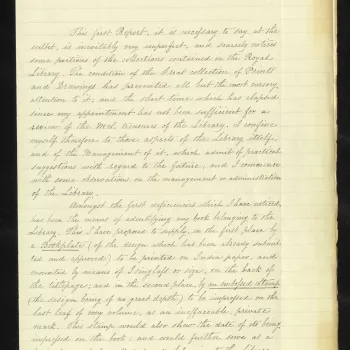 This first Report, it is necessary to say at the
outset, is inevitably very imperfect, and scarcely notices
some portions of the collections contained in the Royal
Library. The condition of the Great collection of Prints
and Drawings has prevented all but the most cursory
attention to it; and the short time which has elapsed
since my appointment has not been sufficient for a
review of the Mss. treasures of the Library. I confine
myself therefore to those aspects of the Library itself,
and of the Management of it, which admit of practical
suggestions with regard to the future; and I commence
with some observations on the management or administration
of the Library.
Amongst the first deficiencies which I have noticed,
has been the means of identifying any book belonging to the
Library. This I have proposed to supply, in the first place by
a Bookplate (of the design which has been already submit-
ted and approved) to be printed on India paper, and
mounted by means of Isinglass or size, on the back of
the titlepage; and in the second place, by an embossed stamp
(the design being of no great depth) to be impressed on the
last leaf of every volume, as an ineffaceable, private
mark. This stamp would also show the date of its being
impressed on the book; and would further serve as a